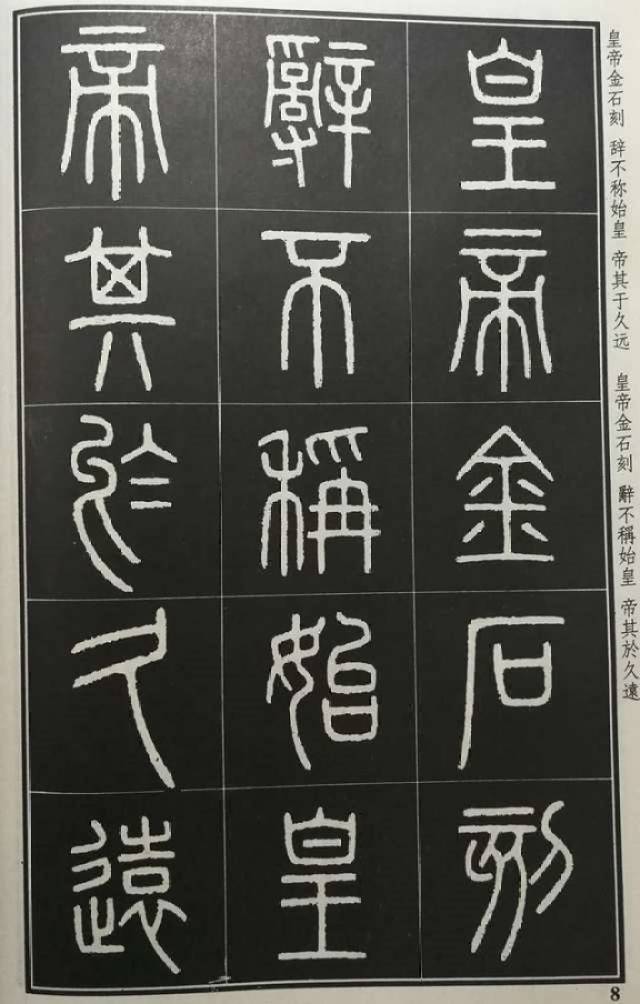 皇帝金石刻
辭不稱始皇
帝其於久遠
皇帝金石刻 辞不称始皇 帝其于久远 皇帝金石刻 辭不稱始皇 帝其於久遠
8